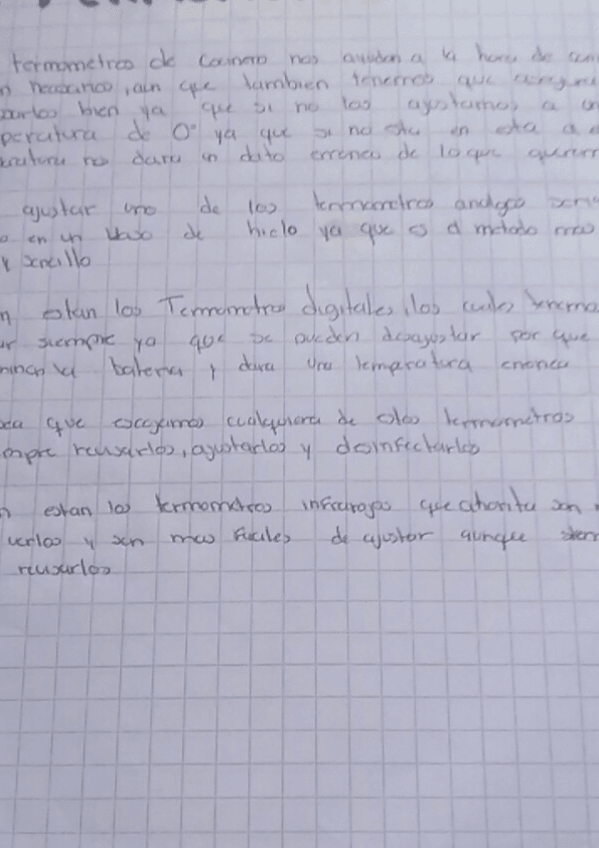 termometros de cocinero nos ayudan a la hora de
necesario, aun que tambien tenemos que
bien ya que si no los ajustamos a
peratura de 0° ya que si no esta en esta
no dara un dato erroneo de lo que
ajustar uno de los termometros analogo
en un vaso de hielo ya que es el metodo mas
y sencillo
estan los Termometros digitales, los cuales tenemo
siempre ya que se pueden desajustar por que
la bateria y dara una temperatura erronea
que escogamos cualquiera de estos termometros
revisarlos, ajustarlos y desinfectarlos
estan los termometros infrarojos que ahorita son
verlos y son mas faciles de ajustar aunque
revisarlos